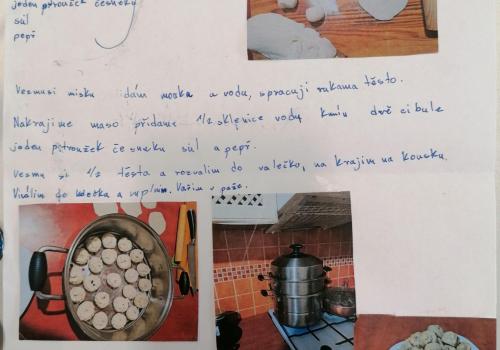 jeden ptroužek česneku
sůl
pepř
Vezmusi misku dám mouka a vodu, spracuji rukama těsto.
Nakrajíme maso přidame 1/2 sklěnice vody kmín dvě cibule
jeden ptroužek česneku sůl a pepř.
vesmu si 1/2 těsta a rozvalim do valečko, na krajim na kousku.
Vválim do a . Vařim v paře.